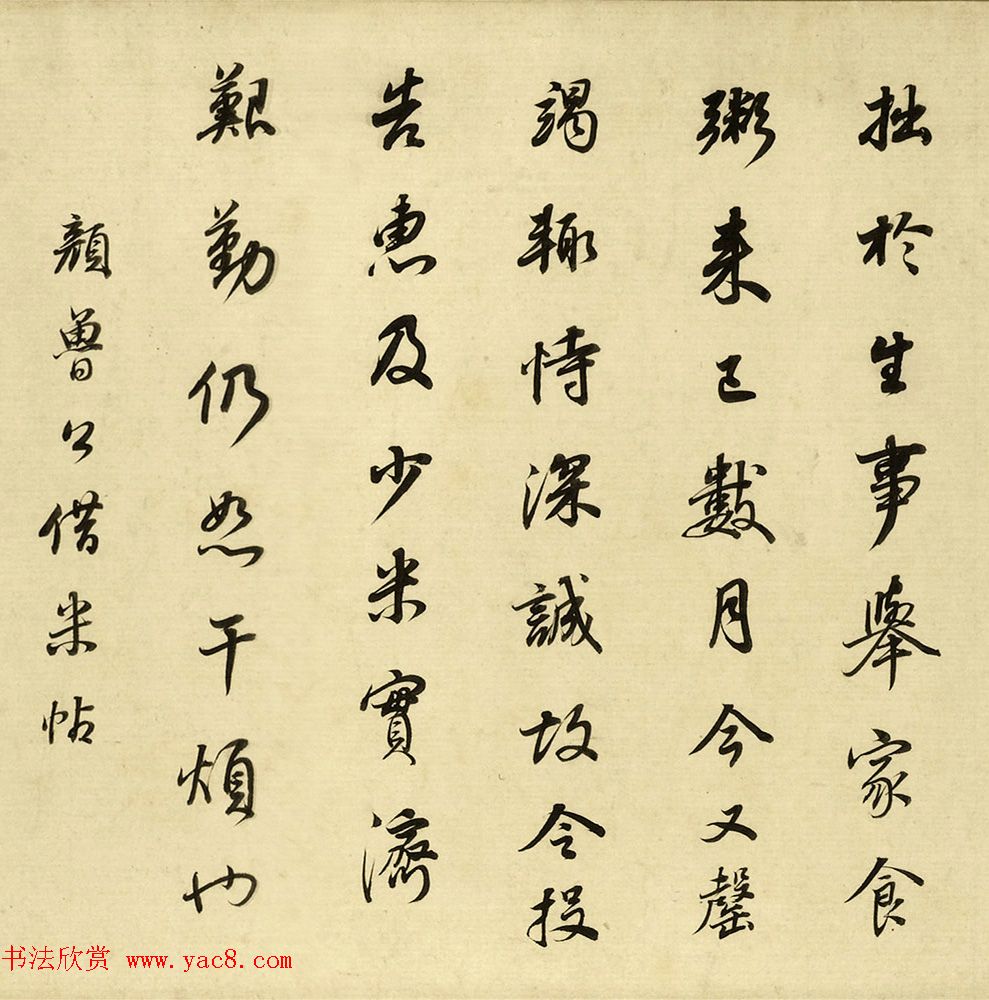 拙於生事舉家食
粥来已數月今又罄
竭輙恃深誠故令投
告惠及少米實濟
艱勤仍恕干煩也
顏魯公借米帖
书法欣赏 www.yac8.com